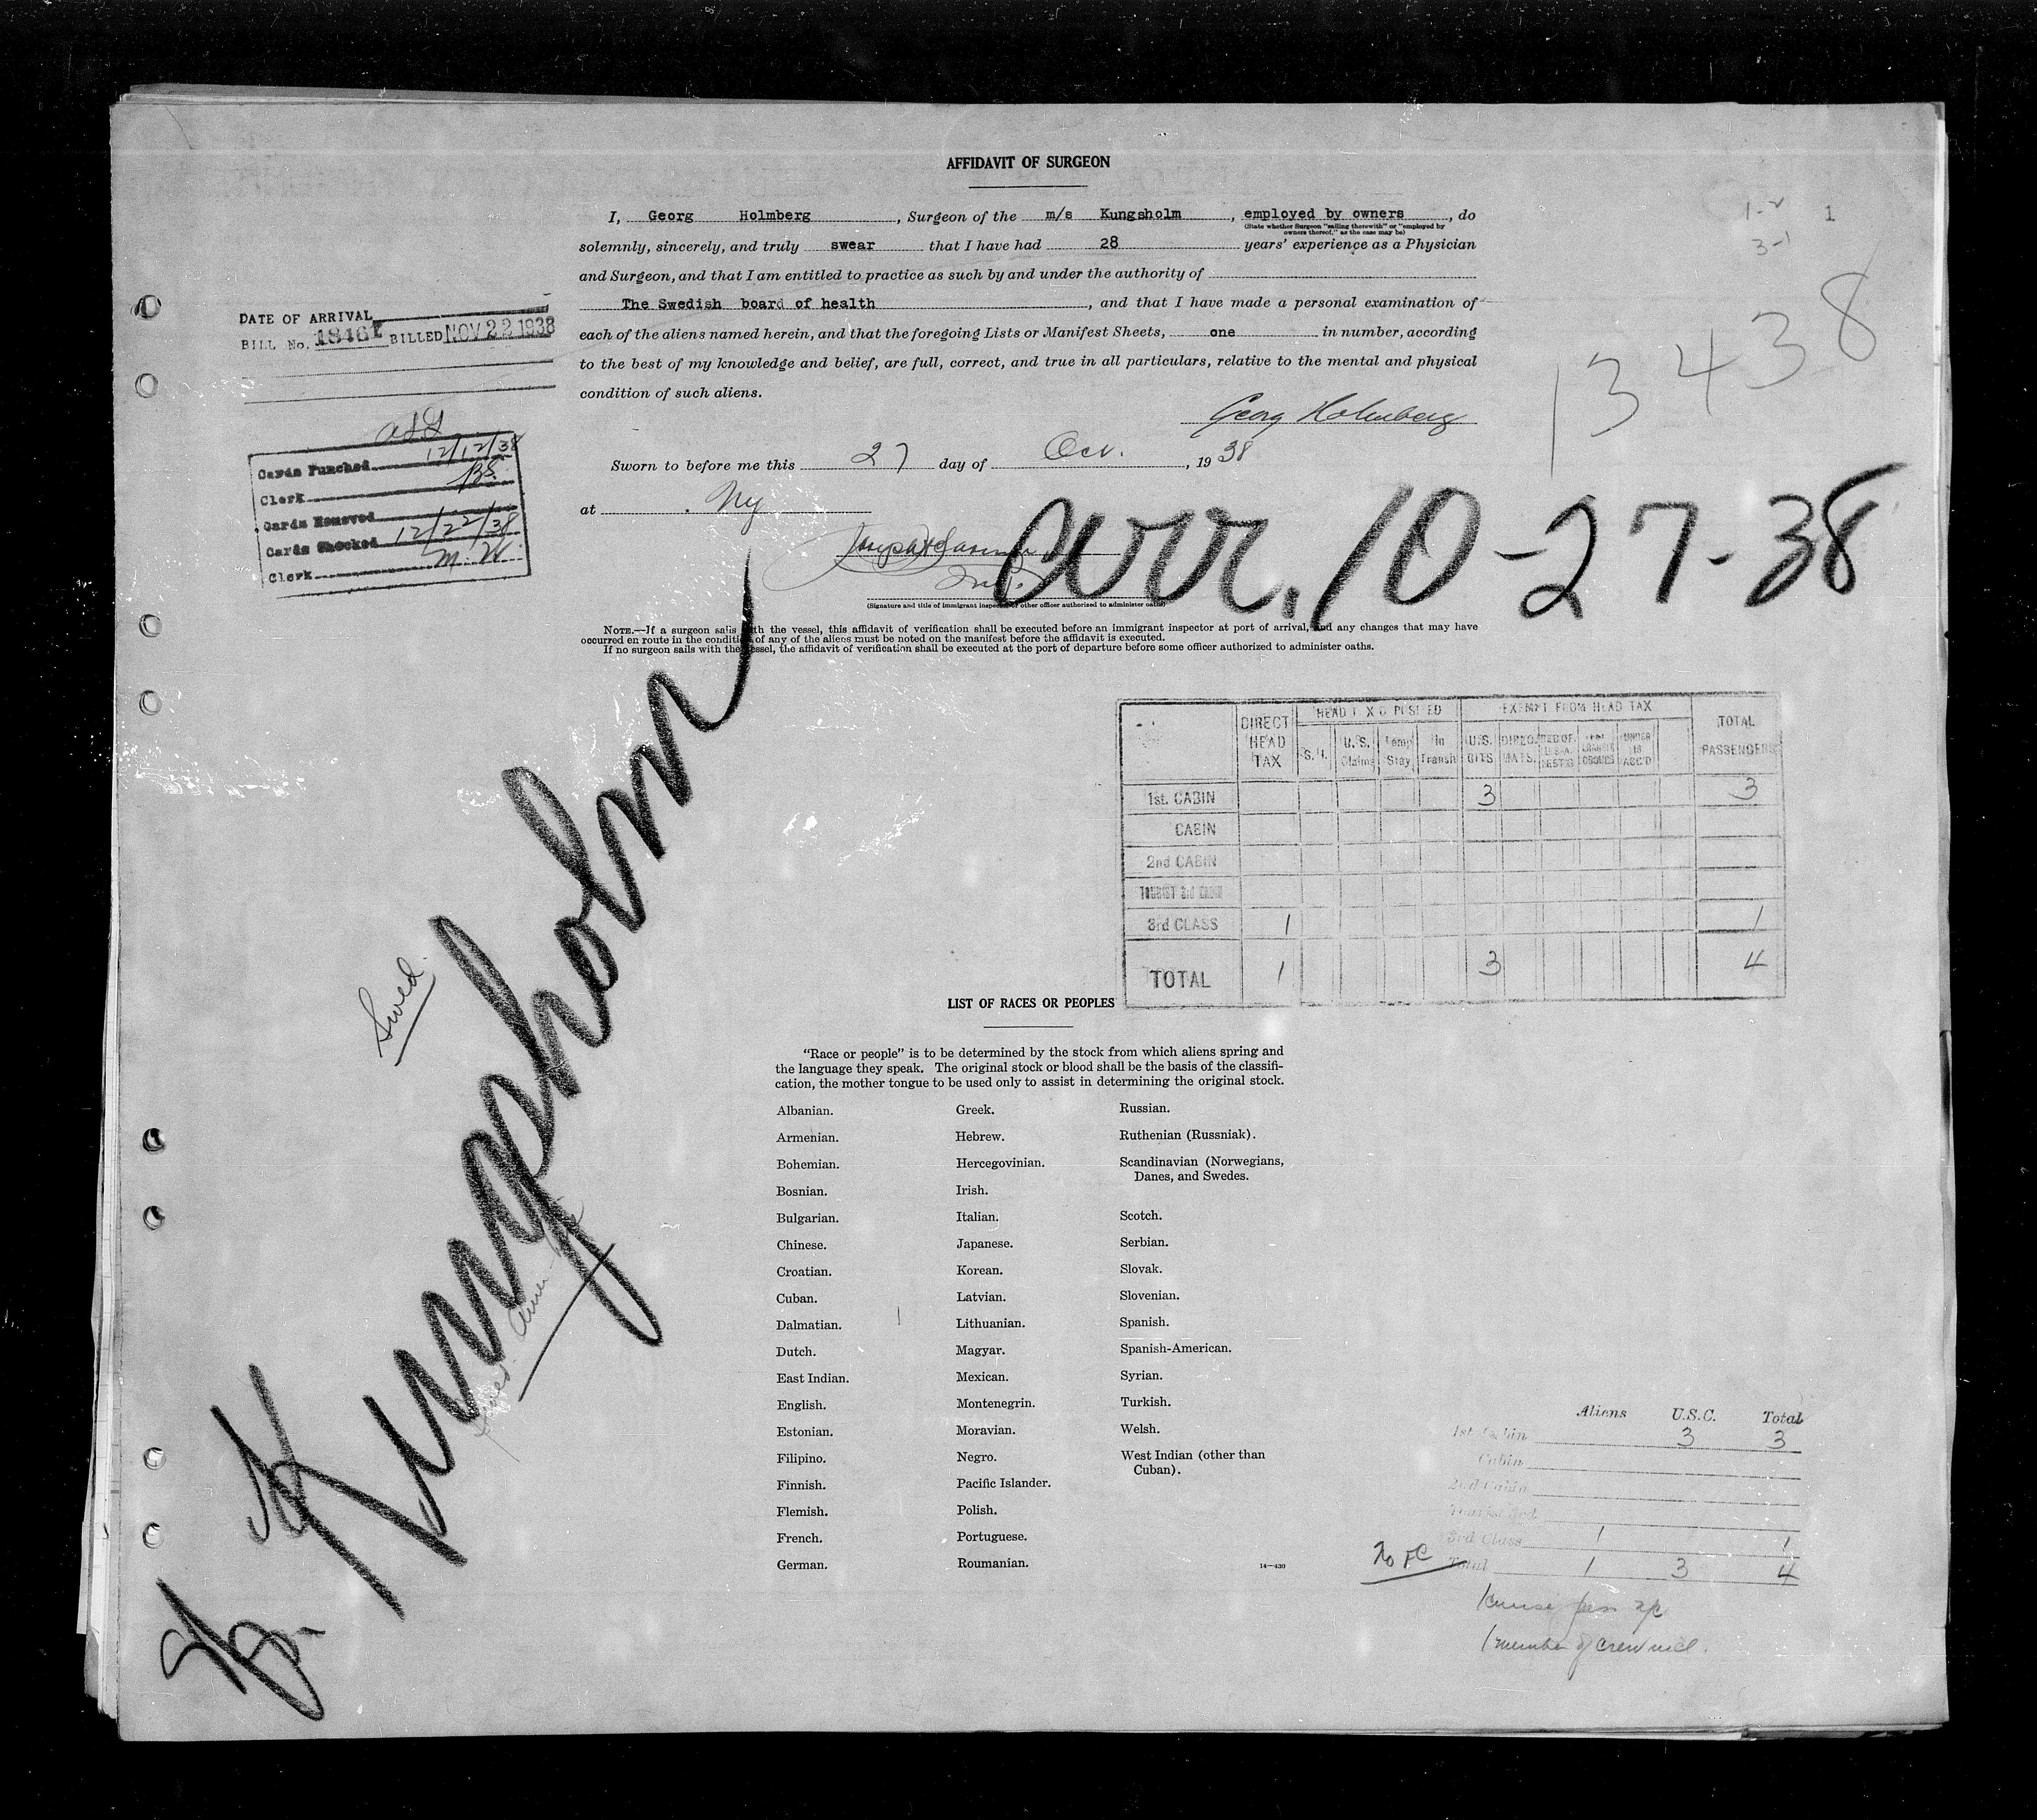 AFFIDAVIT OF SURGEON
I, Georg Holmberg, Surgeon of the m/s Kungsholm, employed by owners, do
(State whether Surgeon "sailing therewith" or "employed by
owners thereof," as the case may be)
solemnly, sincerely, and truly swear that I have had 28 years' experience as a Physician
and Surgeon, and that I am entitled to practice as such by and under the authority of
The Swedish board of health, and that I have made a personal examination of
each of the aliens named herein, and that the foregoing Lists or Manifest Sheets, one in number, according
to the best of my knowledge and belief, are full, correct, and true in all particulars, relative to the mental and physical
condition of such aliens.
Georg Holmberg
Sworn to before me this 27 day of Oct., 1938
at Ny
(Signature and title of immigrant inspector or other officer authorized to administer oaths)
NOTE.—If a surgeon sails with the vessel, this affidavit of verification shall be executed before an immigrant inspector at port of arrival, and any changes that may have
occurred en route in the condition of any of the aliens must be noted on the manifest before the affidavit is executed.
If no surgeon sails with the vessel, the affidavit of verification shall be executed at the port of departure before some officer authorized to administer oaths.
1-2 1
3-1
13438
arr. 10-27-38
DATE OF ARRIVAL
BILL No. 18461 BILLED NOV 22 1938
Cards Punched 12/12/38
Clerk BS.
Cards Removed
Cards Checked 12/22/38
Clerk M. W.
Kungsholm
Swed.
DIRECT HEAD TAX
EXEMPT FROM HEAD TAX
TOTAL PASSENGERS
U.S. Claims
Temp Stay
In Transit
U.S. CITS.
1st. CABIN 3 3
CABIN
2nd CABIN
TOURIST 3rd CABIN
3rd CLASS 1 1
TOTAL 1 3 4
LIST OF RACES OR PEOPLES
"Race or people" is to be determined by the stock from which aliens spring and
the language they speak. The original stock or blood shall be the basis of the classifi-
cation, the mother tongue to be used only to assist in determining the original stock.
Albanian.
Armenian.
Bohemian.
Bosnian.
Bulgarian.
Chinese.
Croatian.
Cuban.
Dalmatian.
Dutch.
East Indian.
English.
Estonian.
Filipino.
Finnish.
Flemish.
French.
German.
Greek.
Hebrew.
Hercegovinian.
Irish.
Italian.
Japanese.
Korean.
Latvian.
Lithuanian.
Magyar.
Mexican.
Montenegrin.
Moravian.
Negro.
Pacific Islander.
Polish.
Portuguese.
Roumanian.
Russian.
Ruthenian (Russniak).
Scandinavian (Norwegians,
Danes, and Swedes.
Scotch.
Serbian.
Slovak.
Slovenian.
Spanish.
Spanish-American.
Syrian.
Turkish.
Welsh.
West Indian (other than
Cuban).
14—430
Aliens U.S.C. Total
1st Cabin 3 3
Cabin
2nd Cabin
Tourist 3rd
3rd Class 1 1
Total 1 3 4
1 member of crew